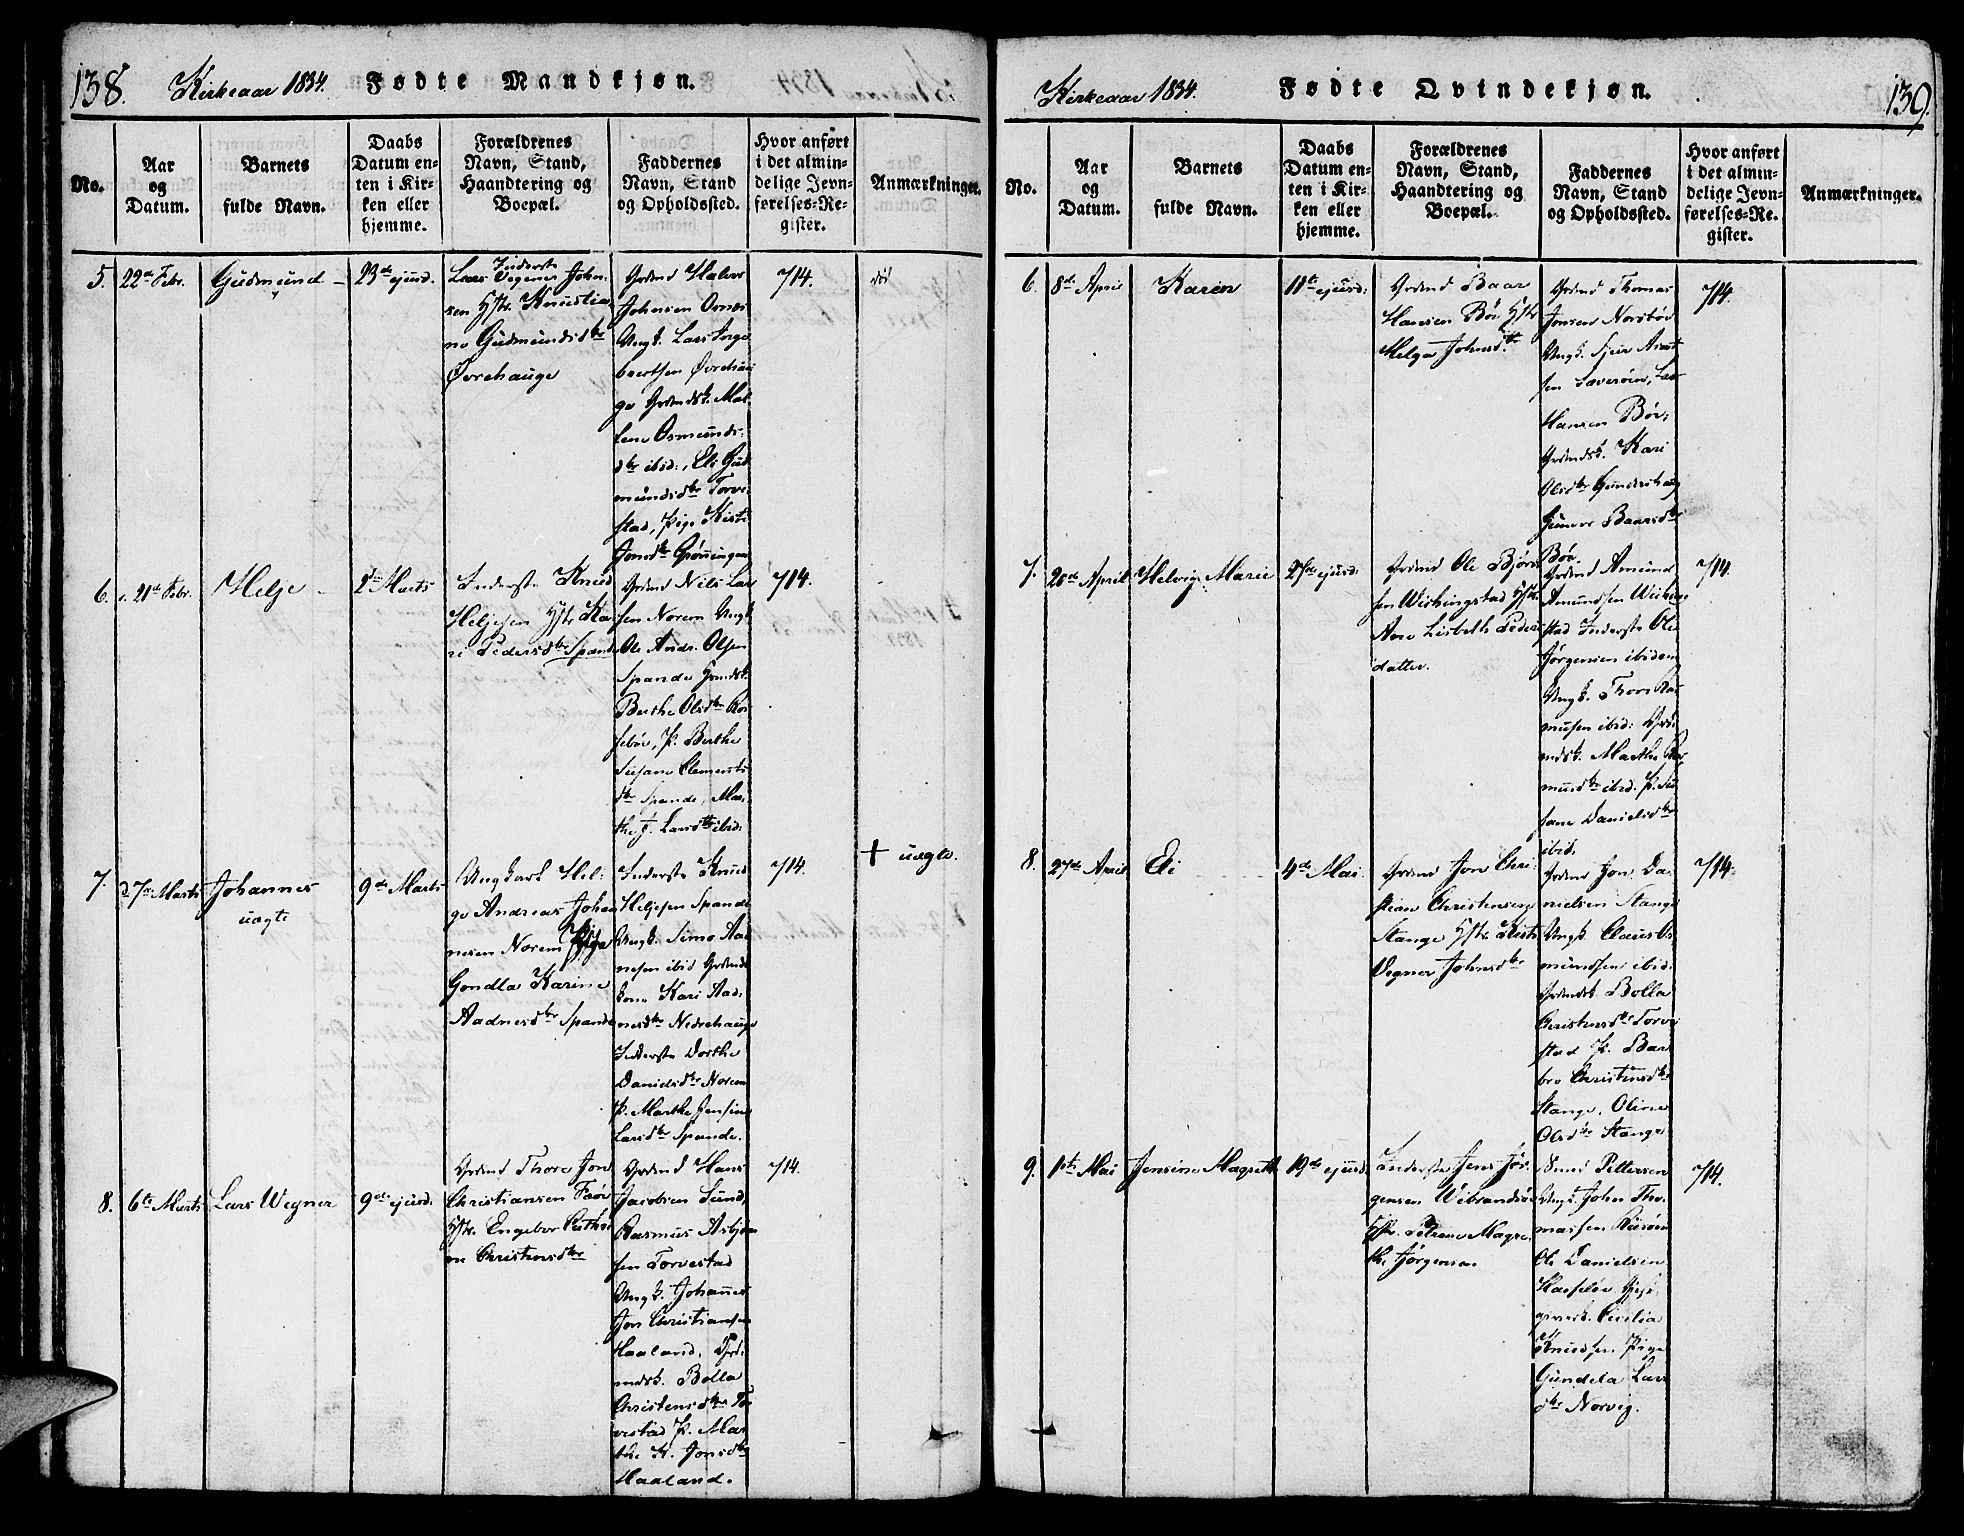 138. Kirkeaar 1834. Fødte Mandkjøn.
No.
Aar
og
Datum.
Barnets
fulde Navn.
Daabs
Datum en-
ten i Kir-
ken eller
hjemme.
Forældrenes
Navn, Stand,
Haandtering og
Boepæl.
Faddernes
Navn, Stand
og Opholdssted.
Hvor anført
i det almin-
delige Jevn-
førelses-Re-
gister.
Anmærkninger.
5.
22de Febr.
Gudmund
23de ejusd.
Inderste
Lars Vegner John-
sen Hstr Knustia
ne Gudmundsdtr
Øvrehauge
Grdmd Halvor
Johnsen Osnæs
Ungk. Lars Torge
beertsen Øvrehau
ge Grdmdsk. Mal
lene Osmunds-
dtr ibid:, Eli Gud
mundsdtr Torve-
stad, Pige Kirsti
Jonsdtr Grønningen
714.
død
6.
21de Febr.
Helje
2den Marts
Inderste Knud
Heljesen Hstr Ka
ri Pedersdtr Spande
Grdmd Nils Lar
sen Norem Ungk
Ole Andr. Olsen
Spande Grmdsk.
Berthe Olsdtr Røs
sebøe, P. Berthe
Susane Clements
dtr Spande, Mar-
the J. Larsdtr ibid:
714.
7.
d. 7de Marts
Johannes
uægte
9de Marts
Ungkarl Hel-
ge Andreas Johan
nesen Norem Pige
Gondla Karine
Aadnesdtr Spande
Inderste Knud
Heljesen Spande
Ungk. Simo Aad
nesen ibid Grdmds
kone Kari Aad-
nesdtr Nedrehauge
Inderste Dorthe
Danielsdtr Norem
P. Marthe Jensine
Larsdtr Spande.
714.
+ uægte.
8.
6te Marts
Lars Wegner
9de ejusd:
Grdmd Thore Jon
Christiansen Feøe
Hstr. Engebor Cathri
ne Christensdtr
Grdmd Hans
Jacobsen Sund,
Rasmus Asbjøn
sen Torvestad
Ungk. Johannes
Jon Christiansen
Haaland, Grd-
mdsk. Bolla
Christensdtr Tor
vestad P. Mar
the K. Jonsdtr
Haaland.
714.
Kirkeaar 1834. Fødte Qvindekjøn. 139.
No.
Aar
og
Datum.
Barnets
fulde Navn.
Daabs
Datum en-
ten i Kir-
ken eller
hjemme.
Forældrenes
Navn, Stand,
Haandtering og
Boepæl.
Faddernes
Navn, Stand
og Opholdssted.
Hvor anført
i det almin-
delige Jevn-
førelses-Re-
gister.
Anmærkninger.
6.
8de April
Karen
11te ejusd:
Grdmd Baar
Hansen Bøe Hstr
Helga Johnsdtr
Grdmd Thomas
Jonsen Norsbøe
Ungk. Sjur
sen
Hansen Bøe,
Grdmdsk. Kari
Olsdtr Gundershaug
Gunvor Baarsdtr
Bøe.
714.
7.
20de April
Helvig Marie
27de ejusd:
Grdmd Ole Bjørn
sen Wichingstad Hstr.
Ane Lisbeth Peders
datter.
Grdmd Amund
Amundsen Wiching
stad Inderste Ole
Jørgensen ibidem
Ungk. Thore Ras
musen ibid: Grd-
mdsk. Marthe Ras
musdtr ibid. P. Su
sane Danielsdtr
ibid.
714.
8.
27de April
Eli
4de Mai
Grdmd Jon Chri-
stian Christensen
Stange Hstr. Kirsti
Vegner Johnsdtr
Grdmd Jon Da
nielsen Stange
Ungk Claus Os
mundsen ibid.
Grdmdsk. Bolla
Christensdtr Torve
stad P. Bar
bro Christensdtr
Stange, Oline
Olsdtr Stange
714.
9.
1ste Mai
Jensine Magrethe
19de ejusd.
Inderste Jens Jør-
gensen Wibrandsøe
Hstr. Petrene Magre-
the Jørgensen
Smed Pettersen
Ungk. John Tho-
massen Risøen
Ole Danielsen
Hasseløe Gjest-
giversk. Cicilia
Knudsen Pige
Gundela Lars
dtr Norvig.
714.